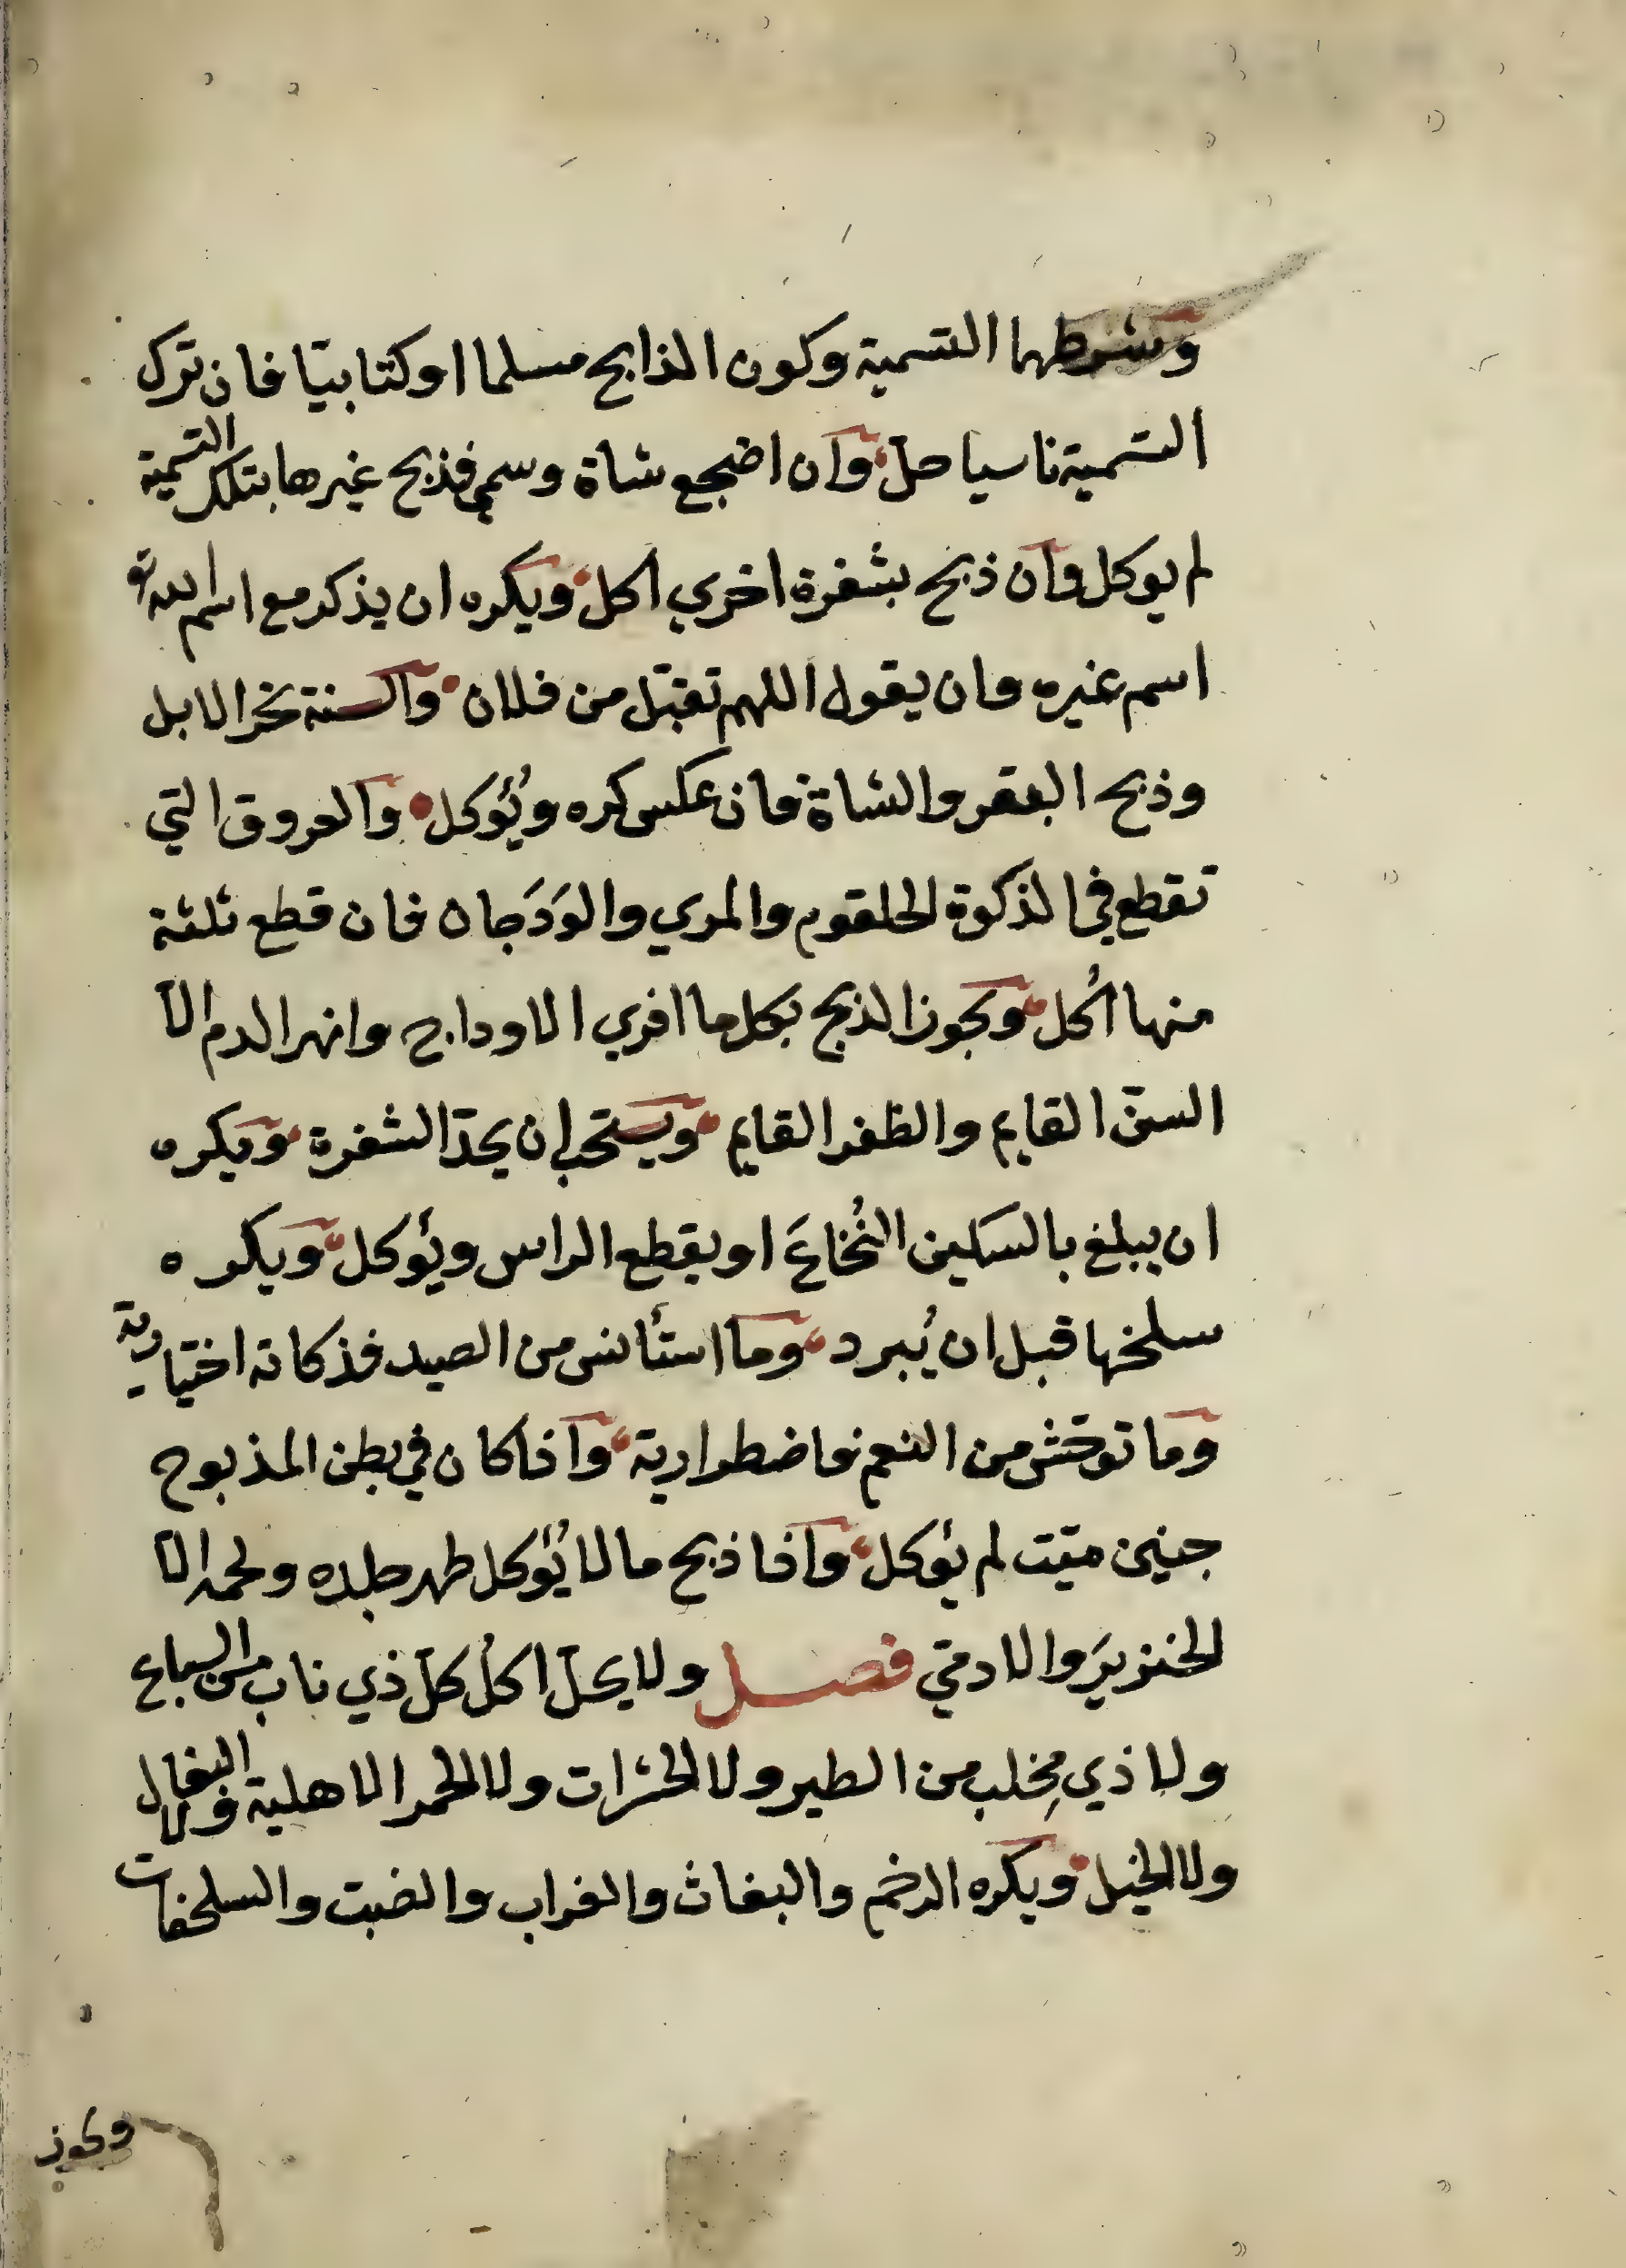 وشرطهما التسمية وكون الذابح مسلما او كتابيّا فان ترك
التسمية ناسيا حلّ وان اضجع شاة وسمي فذبح غيرها بتلك التسمية
لم يوكل وان ذبح بشفرة اخري اكل ويكره ان يذكر مع اسم الله تع
اسم غيره وان يقول اللهم تقبّل من فلان والسنة نحر الابل
وذبح البقر والشاة فان عكس كره ويُؤكل والعروق التي
تقطع في الذكوة الحلقوم والمري والوَدَجان فان قطع ثلثة
منها اُكل ويجوز الذبح بكل ما افري الاوداج وانهر الدم الّا
السنّ القايم والظفر القايم ويستحب ان يحدّ الشفرة ويكره
ان يبلغ بالسكين النُخاعَ او يقطع الراس ويؤكل ويكره
سلخها قبل ان يُبرد وما استأنس من الصيد فذكاته اختيارية
وما توحّش من النعم فاضطرارية واذا كان في بطن المذبوح
جنين ميّت لم يؤكل واذا ذبح ما لا يُؤكل طهر جلده ولحمه الّا
الخنزيرَ والادميّ فصل ولا يحلّ اكلُ كلّ ذي ناب من السباع
ولا ذي مِخلب من الطير ولا الحشرات ولا الحمر الاهلية ولا البغال
ولا الخيل ويكره الرخم والبغاث والغراب والضبّ والسلحفات
ويجوز